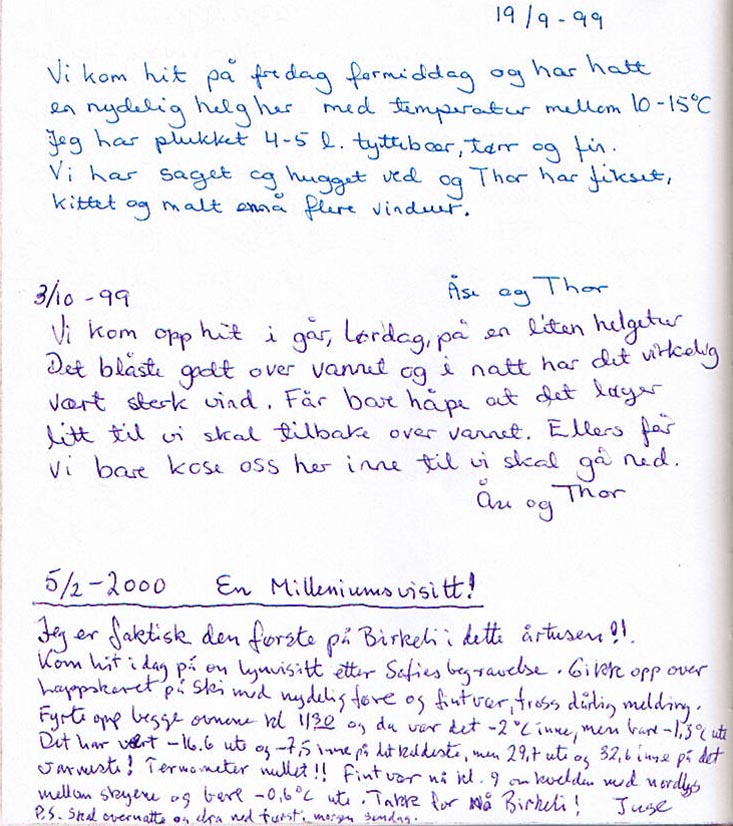 19/9-99
Vi kom hit på fredag formiddag og har hatt
en nydelig helg her med temperatur mellom 10-15°C
Jeg har plukket 4-5 l. tyttebær, tørr og fin.
Vi har saget og hugget ved og Thor har fikset,
kittet og malt ennå flere vinduer.
Åse og Thor
3/10-99
Vi kom opp hit i går, Lørdag, på en liten helgetur
Det blåste godt over vannet og i natt har det virkelig
vært sterk vind. Får bare håpe at det løyer
litt til vi skal tilbake over vannet. Ellers får
vi bare kose oss her inne til vi skal gå ned.
Åse og Thor
5/2-2000 En Milleniumsvisitt!
Jeg er faktisk den første på Birkeli i dette årtusen?!.
Kom hit i dag på en lynvisitt etter Sofies begravelse. Gikk opp over
på ski med nydelig føre og fint vær, tross dårlig melding.
Fyrte opp begge ovnene kl 1130 og da var det -2°C inne, men bare -1,3°C ute
Det har vært -16.6 ute og -7,5 inne på det kaldeste, men 29,7 ute og 32,6 inne på det
varmeste! Termometer nullet!! Fint vær nå kl. 9 om kvelden med nordlys
mellom skyene og bare -0,6°C ute. Takk for nå Birkeli!
P.S. Skal overnatte og dra ned først i morgen søndag.